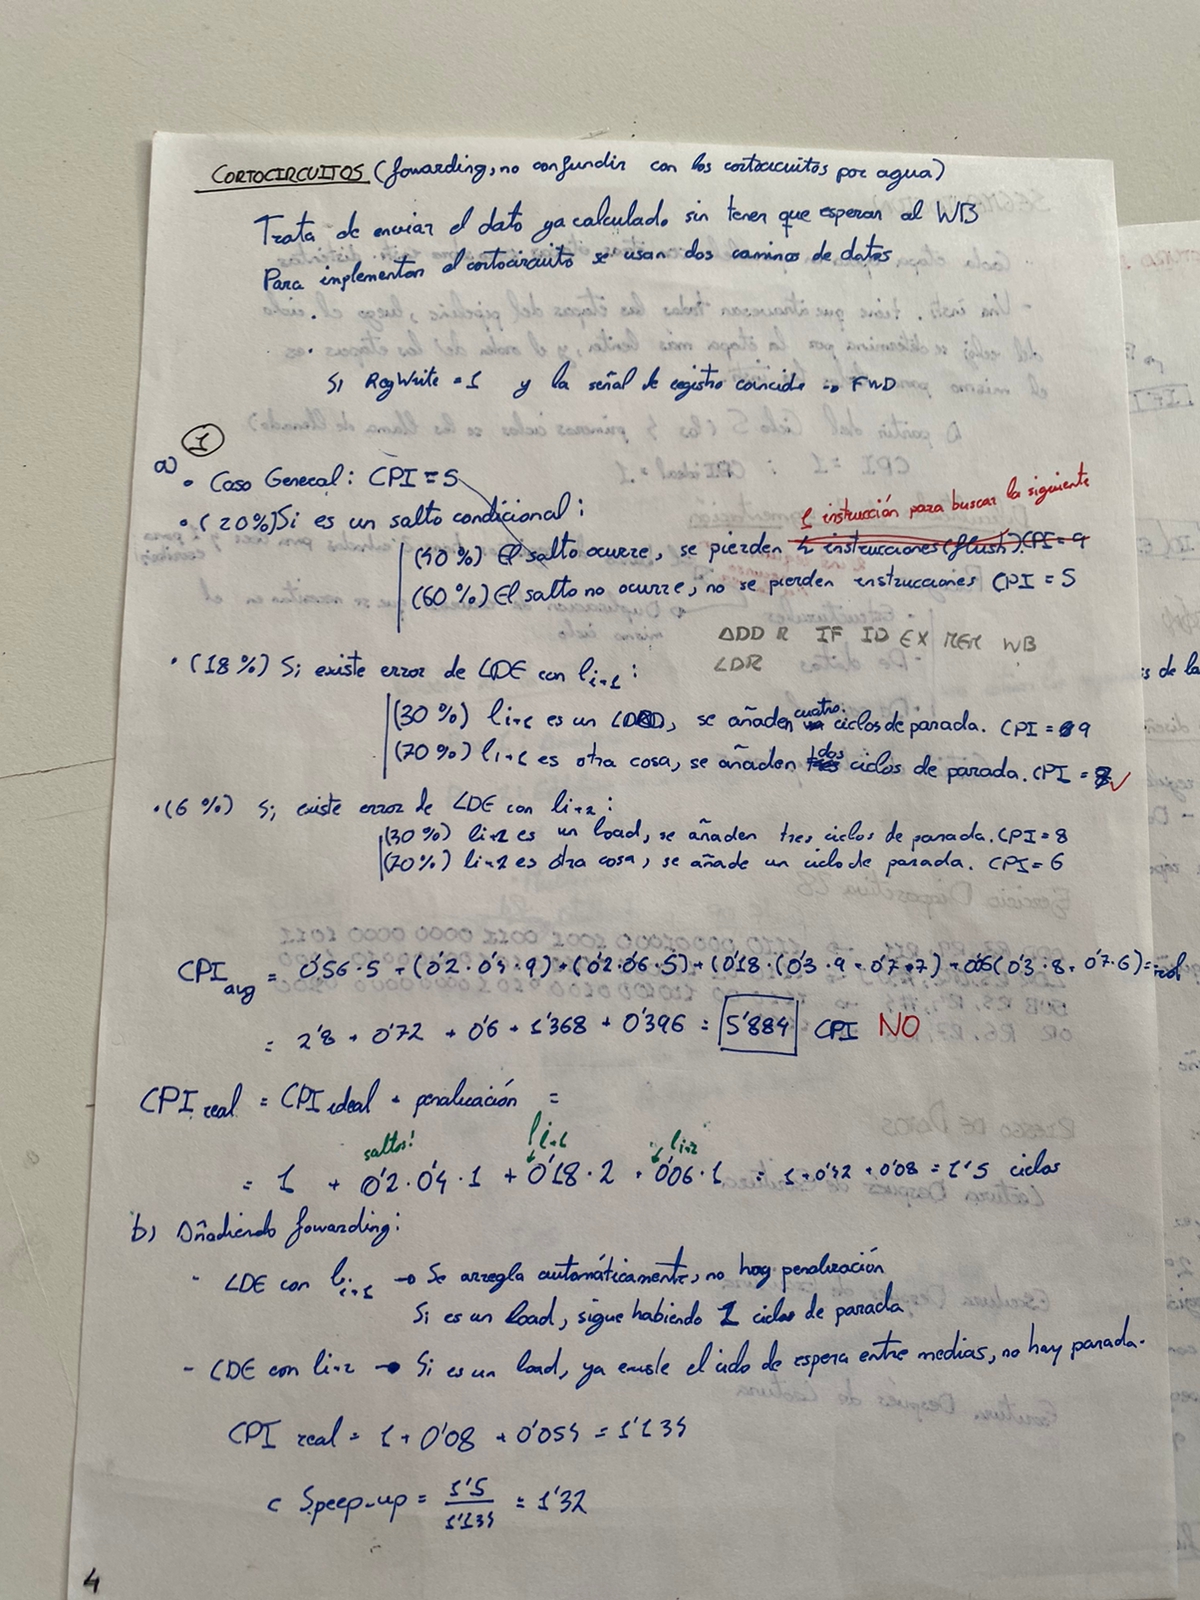 CORTOCIRCUITOS (fowarding, no confundir con los cortocircuitos por agua)
Trata de enviar el dato ya calculado sin tener que esperar al WB
Para implementar el cortocircuito se usan dos caminos de datos
Si RegWrite = 1 y la señal de registro coincide → FWD
1
a) • Caso General: CPI = 5
• (20%) Si es un salto condicional:
1 instrucción para buscar la siguiente
(40%) El salto ocurre, se pierden 4 instrucciones (flush). CPI = 9
(60%) El salto no ocurre, no se pierden instrucciones CPI = 5
ADD R IF ID EX MEM WB
LDR
• (18%) Si existe error de LDE con li+1:
(30%) li+1 es un LOAD, se añaden cuatro ciclos de parada. CPI = 9
(70%) li+1 es otra cosa, se añaden dos ciclos de parada. CPI =
• (6%) Si existe error de LDE con li+2:
(30%) li+2 es un load, se añaden tres ciclos de parada. CPI = 8
(70%) li+2 es otra cosa, se añade un ciclo de parada. CPI = 6
CPI avg = 0'56·5 + (0'2·0'4·9) + (0'2·0'6·5) + (0'18·(0'3·9+0'7·7) + 0'06(0'3·8+0'7·6) =
= 2'8 + 0'72 + 0'6 + 1'368 + 0'396 = 5'884 CPI NO
CPI real = CPI ideal + penalización =
saltos! li+1 li+2
= 1 + 0'2·0'4·1 + 0'18·2 + 0'06·1 = 1 + 0'42 + 0'08 = 1'5 ciclos
b) Añadiendo fowarding:
- LDE con li+1 → Se arregla automáticamente, no hay penalización
Si es un load, sigue habiendo 1 ciclo de parada
- LDE con li+2 → Si es un load, ya existe el ciclo de espera entre medias, no hay parada.
CPI real = 1 + 0'08 + 0'054 = 1'134
c Speep-up = 1'5 / 1'134 = 1'32
4